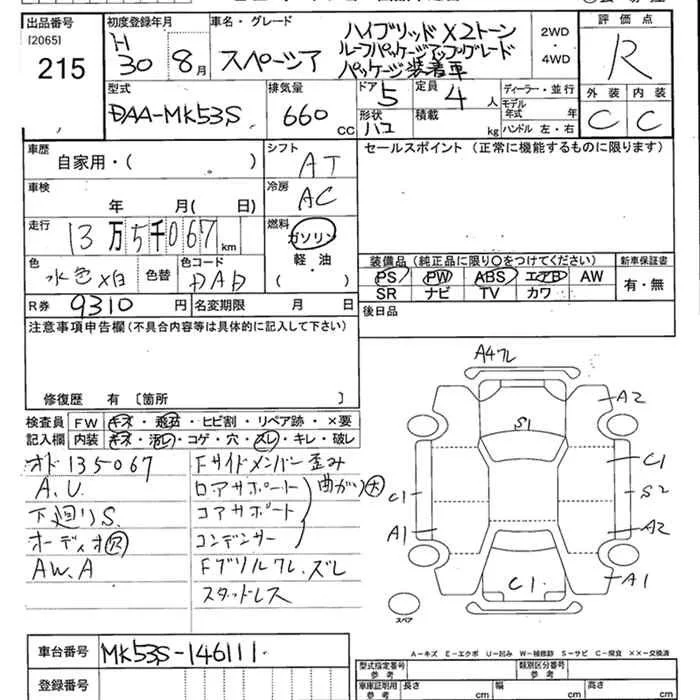 出品番号 初度登録年月 車名・グレード 評価点
[2065] 215
H 30 8月 スペーシア
ハイブリッド X 2トーン
ルーフパッケージアップグレード
パッケージ装着車
2WD ・ 4WD
R
型式 排気量 ドア 5 定員 4人 ディーラー・並行 外装 内装
DAA-MK53S 660 CC 形状 積載 kg モデル年式 年 C C
ハンドル 左・右
車歴 シフト セールスポイント (正常に機能するものに限ります)
自家用・( ) AT
車検 冷房
年 月( 日) AC
走行 燃料
13万5千067km ガソリン
軽・油
( )
色 色替 色コード
水色×白 DAD
装備品 (純正品に限り○をつけてください) 新車保証書
PS PW ABS エアB AW 有・無
SR ナビ TV カワ
R券 9310円 名変期限 月 日 後日品
注意事項申告欄(不具合内容等は具体的に記入して下さい)
修復歴 有 〔箇所 〕
検査員 FW キズ・飛石・ヒビ割・リペア跡・×要
記入欄 内装 キズ・汚レ・コゲ・穴・スレ・キレ・破レ
オド135067 Fサイドメンバー歪み
A.U. ロアサポート
下廻りS. コアサポート 曲がり大
オーディオ穴 コンデンサー
AW.A Fグリルワレ.ズレ
スタッドレス
A4ワレ
A2
S1
C1 C1
S2
A1 A2
C1 A1
スペア
車台番号 MK53S-146111
登録番号
A-キズ E-エクボ U-凹み W-補修跡 S-サビ C-腐食 ××-交換済
型式指定番号 参考 類別区分番号 参考
車庫証明用 参考 長さ cm 幅 cm 高さ cm